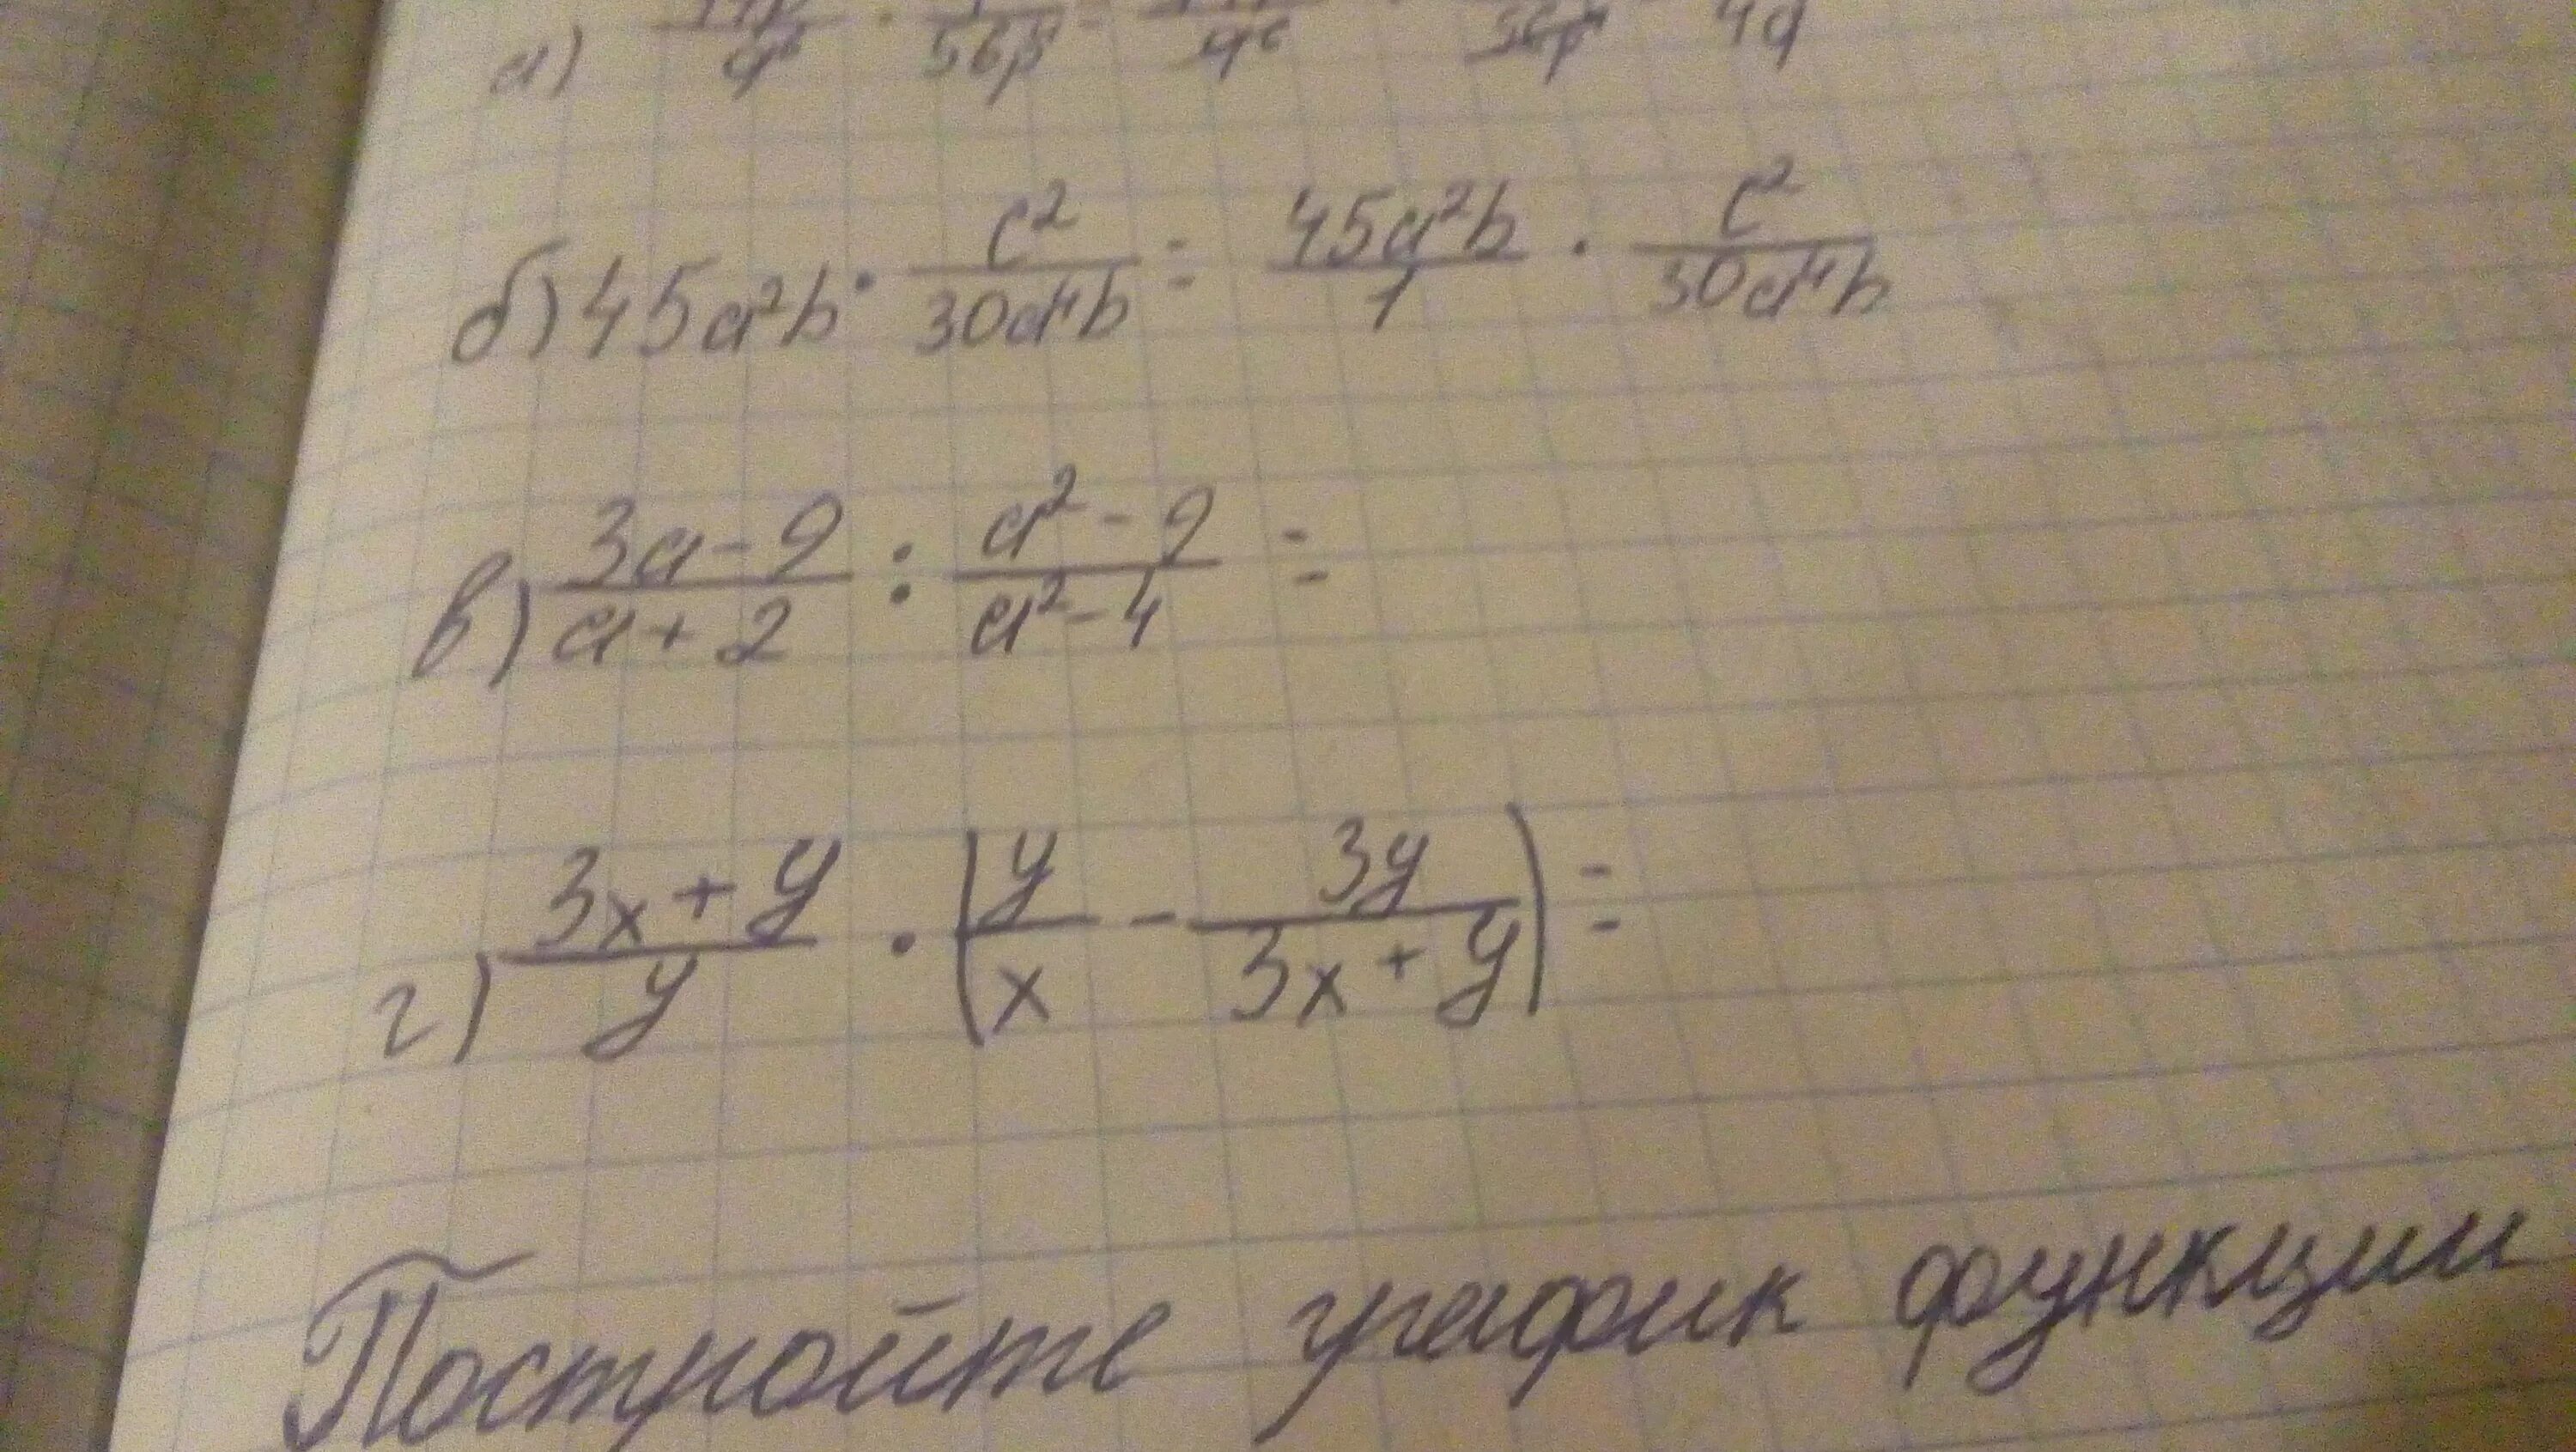 а)
б) 45a²b · c²/30a⁴b = 45a²b/1 · c²/30a⁴b
в) 3a-9/a+2 : a²-9/a²-4 =
г) 3x+y/y · (y/x - 3y/3x+y) =
Постройте график функции